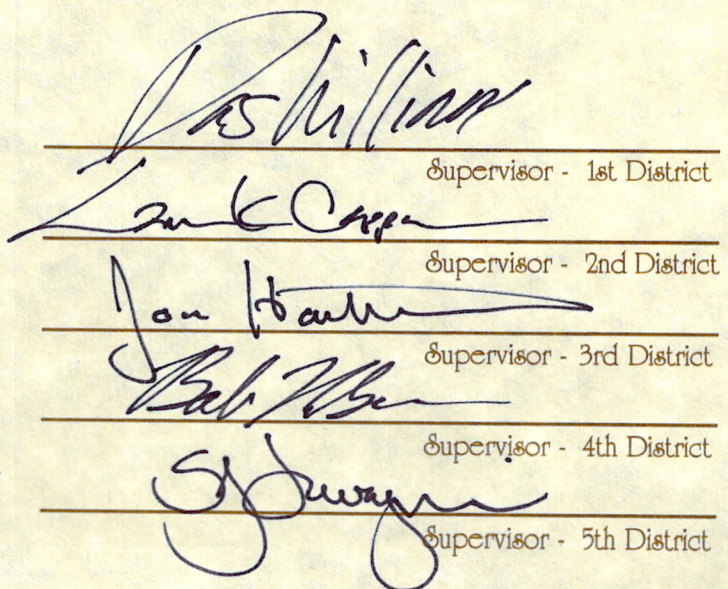 Das Williams
Supervisor - 1st District
K Capps
Supervisor - 2nd District
Joan
Supervisor - 3rd District
Bob
Supervisor - 4th District
Supervisor - 5th District